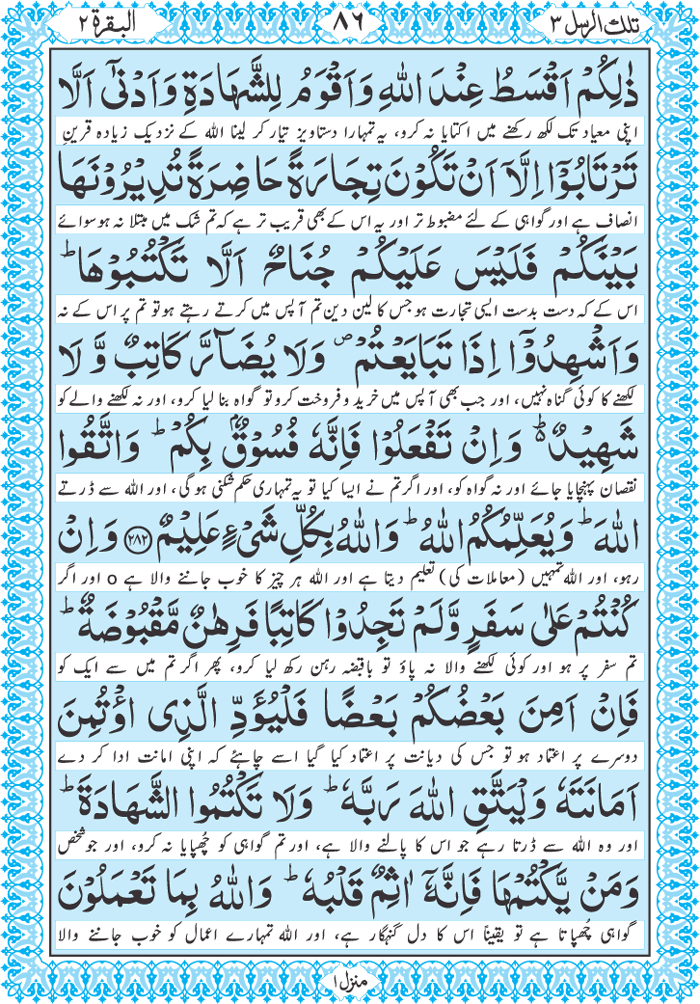 تلك الرسل ٣
٨٦
البقرة ٢
ذٰلِكُمْ اَقْسَطُ عِنْدَ اللّٰهِ وَاَقْوَمُ لِلشَّهَادَةِ وَاَدْنٰٓى اَلَّا
اپنی معیاد تک لکھ رکھنے میں اکتایا نہ کرو، یہ تمہارا دستاویز تیار کر لینا اللہ کے نزدیک زیادہ قرینِ
تَرْتَابُوْٓا اِلَّآ اَنْ تَكُوْنَ تِجَارَةً حَاضِرَةً تُدِيْرُوْنَهَا
انصاف ہے اور گواہی کے لئے مضبوط تر اور یہ اس کے بھی قریب تر ہے کہ تم شک میں مبتلا نہ ہو سوائے
بَيْنَكُمْ فَلَيْسَ عَلَيْكُمْ جُنَاحٌ اَلَّا تَكْتُبُوْهَا ؕ
اس کے کہ دست بدست ایسی تجارت ہو جس کا لین دین تم آپس میں کرتے رہتے ہو تو تم پر اس کے نہ
وَاَشْهِدُوْٓا اِذَا تَبَايَعْتُمْ ۪ وَلَا يُضَآرَّ كَاتِبٌ وَّلَا
لکھنے کا کوئی گناہ نہیں، اور جب بھی آپس میں خرید و فروخت کرو تو گواہ بنا لیا کرو، اور نہ لکھنے والے کو
شَهِيْدٌ ؕ۬ وَاِنْ تَفْعَلُوْا فَاِنَّهٗ فُسُوْقٌۢ بِكُمْ ؕ وَاتَّقُوا
نقصان پہنچایا جائے اور نہ گواہ کو، اور اگر تم نے ایسا کیا تو یہ تمہاری حکم شکنی ہوگی، اور اللہ سے ڈرتے
اللّٰهَ ؕ وَيُعَلِّمُكُمُ اللّٰهُ ؕ وَاللّٰهُ بِكُلِّ شَیْءٍ عَلِيْمٌ ﴿۲۸۲﴾ وَاِنْ
رہو، اور اللہ تمہیں (معاملات کی) تعلیم دیتا ہے اور اللہ ہر چیز کا خوب جاننے والا ہے o اور اگر
كُنْتُمْ عَلٰى سَفَرٍ وَّلَمْ تَجِدُوْا كَاتِبًا فَرِهٰنٌ مَّقْبُوْضَةٌ ؕ
تم سفر پر ہو اور کوئی لکھنے والا نہ پاؤ تو باقبضہ رہن رکھ لیا کرو، پھر اگر تم میں سے ایک کو
فَاِنْ اَمِنَ بَعْضُكُمْ بَعْضًا فَلْيُؤَدِّ الَّذِى اؤْتُمِنَ
دوسرے پر اعتماد ہو تو جس کی دیانت پر اعتماد کیا گیا اسے چاہئے کہ اپنی امانت ادا کر دے
اَمَانَتَهٗ وَلْيَتَّقِ اللّٰهَ رَبَّهٗ ؕ وَلَا تَكْتُمُوا الشَّهَادَةَ ؕ
اور وہ اللہ سے ڈرتا رہے جو اس کا پالنے والا ہے، اور تم گواہی کو چُھپایا نہ کرو، اور جو شخص
وَمَنْ يَّكْتُمْهَا فَاِنَّهٗٓ اٰثِمٌ قَلْبُهٗ ؕ وَاللّٰهُ بِمَا تَعْمَلُوْنَ
گواہی چُھپاتا ہے تو یقیناً اس کا دل گنہگار ہے، اور اللہ تمہارے اعمال کو خوب جاننے والا
منزل ١